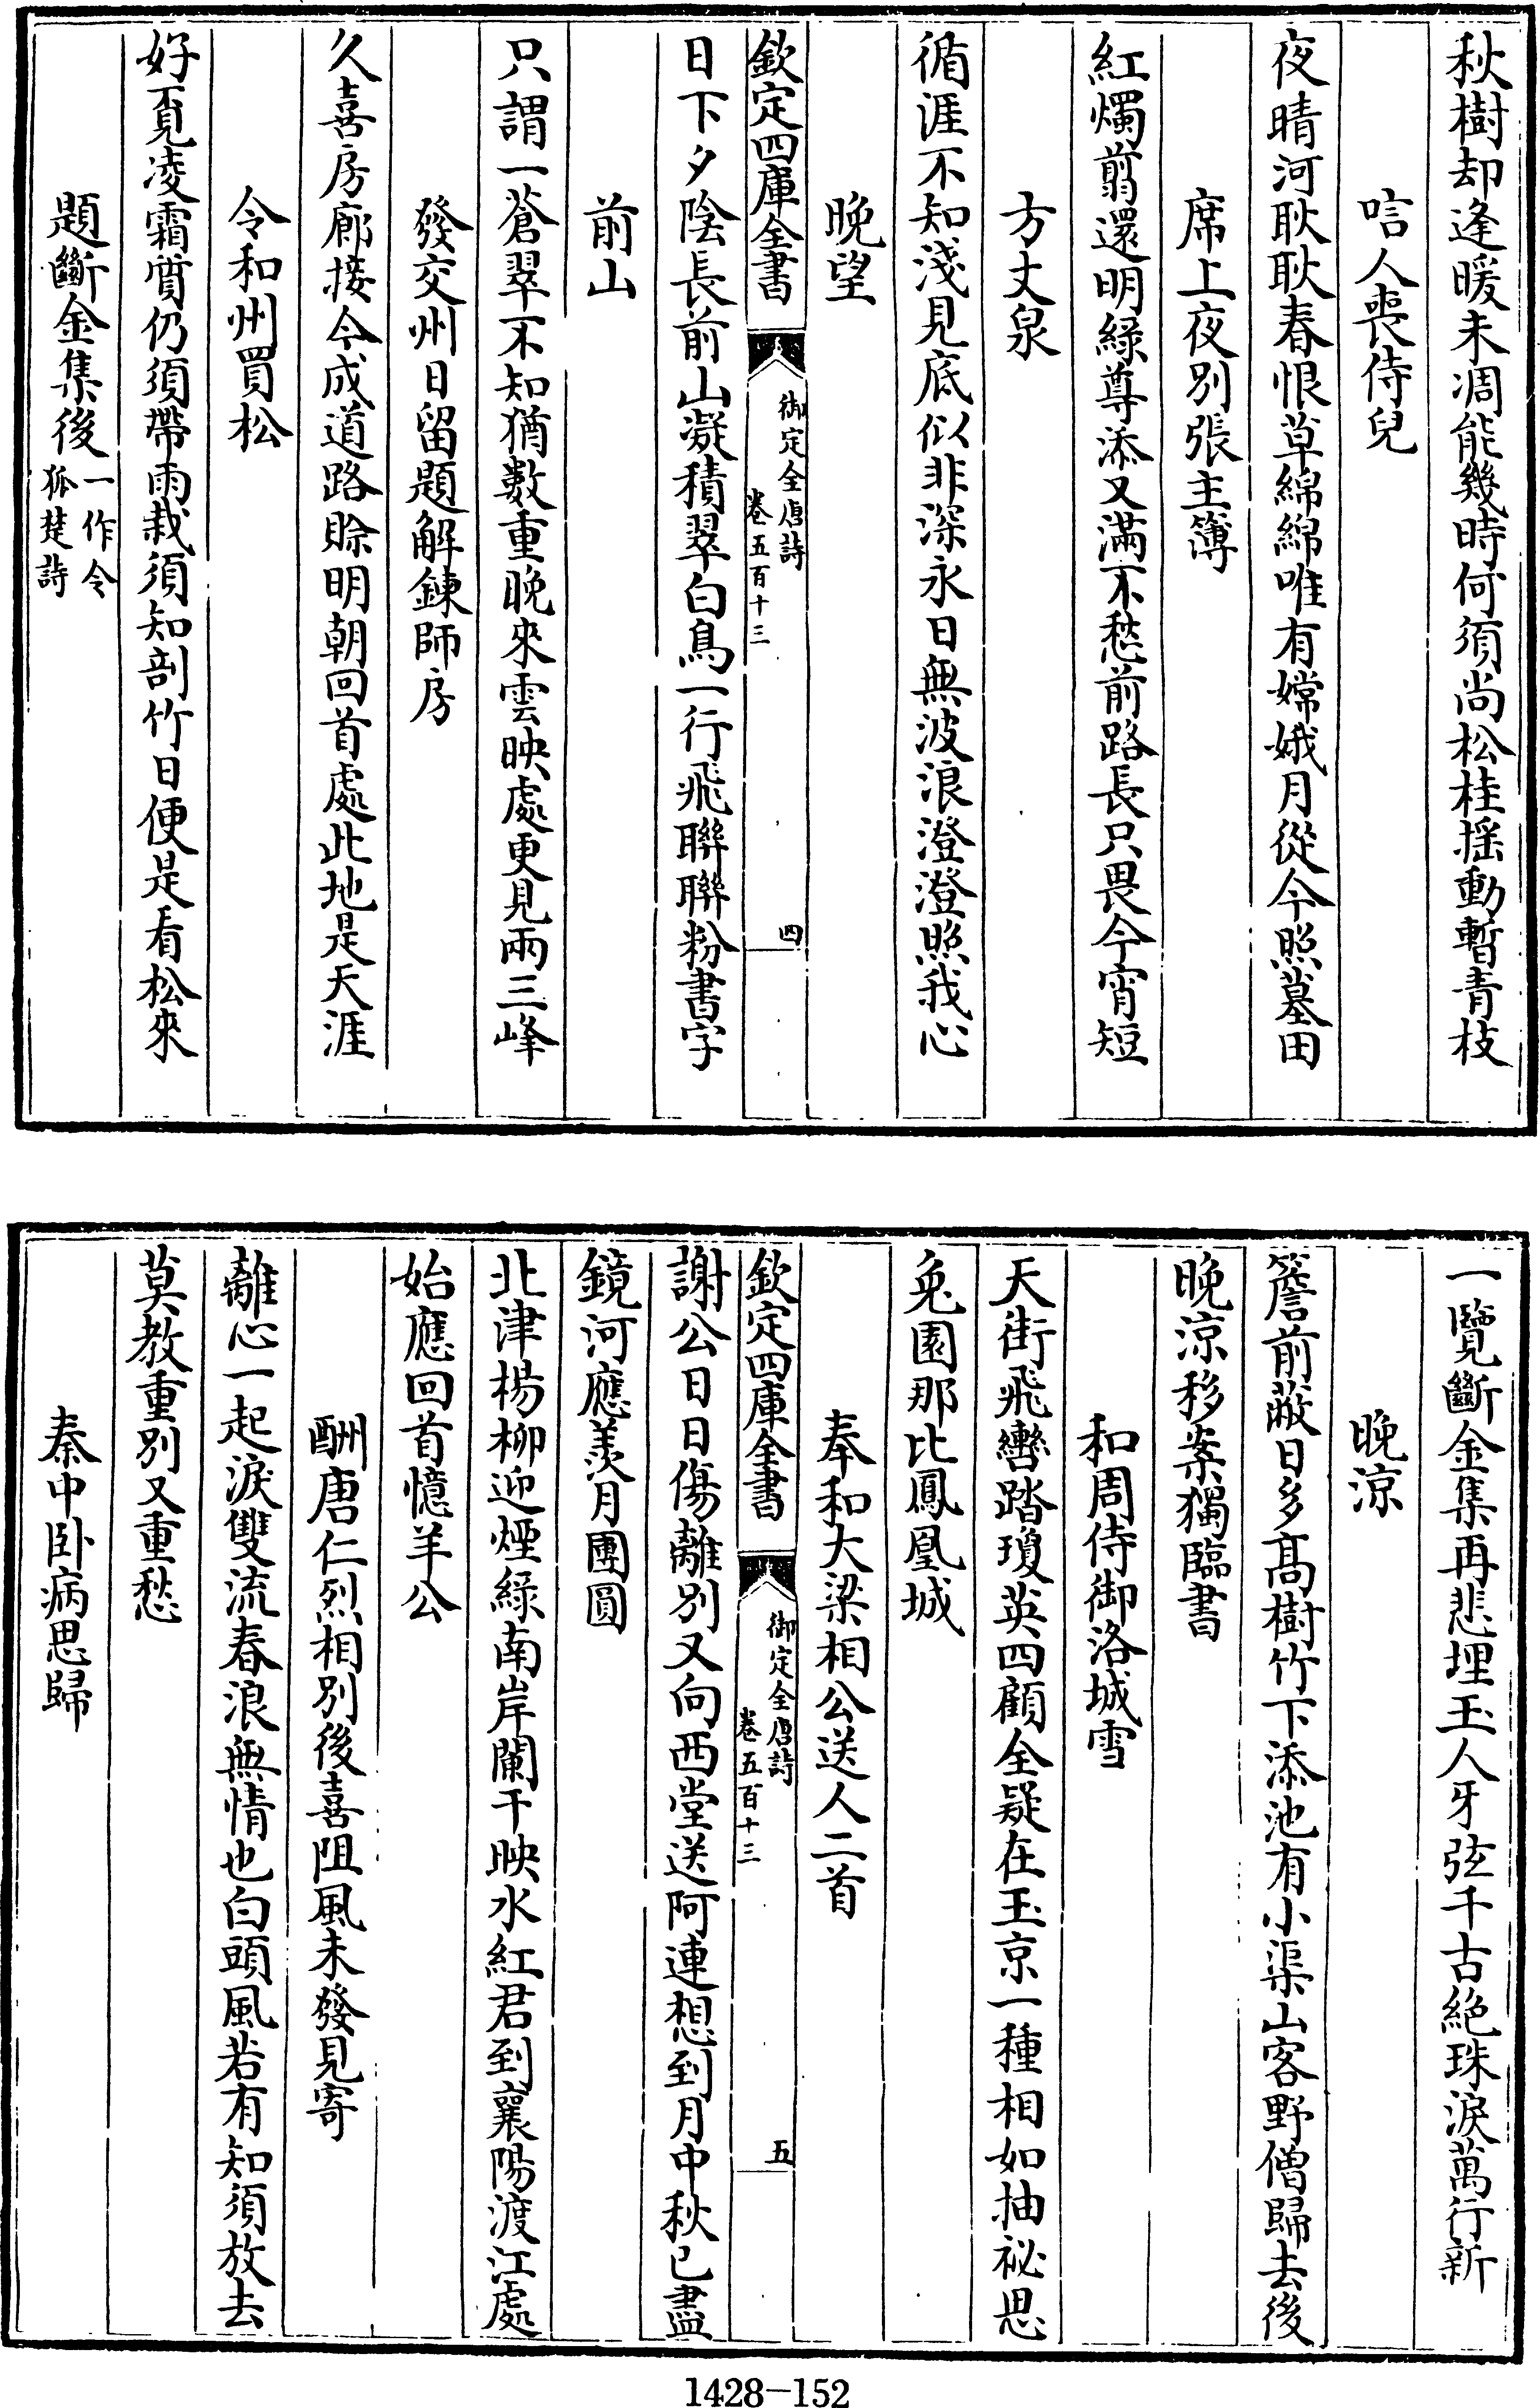 秋樹却逢暖未凋能幾時何須尚松桂揺動暫青枝
唁人喪侍兒
夜晴河耿耿春恨草綿綿唯有嫦娥月從今照墓田
席上夜别張主簿
紅燭剪還明緑尊添又滿不愁前路長只畏今宵短
方丈泉
循涯不知淺見底似非深永日無波浪澄澄照我心
晚望
欽定四庫全書
御定全唐詩
卷五百十三
四
日下夕陰長前山凝積翠白鳥一行飛聯聯粉書字
前山
只謂一蒼翠不知猶數重晚來雲映處更見兩三峰
發交州日留題解鍊師房
久喜房廊接今成道路賒明朝回首處此地是天涯
令和州買松
好覔凌霜質仍須帶雨栽須知剖竹日便是看松來
題斷金集後
一作令
狐楚詩
一覽斷金集再悲埋玉人牙弦千古絶珠淚萬行新
晚涼
簷前蔽日多髙樹竹下添池有小渠山客野僧歸去後
晚涼移案獨臨書
和周侍御洛城雪
天街飛轡踏瓊英四顧全疑在玉京一種相如抽祕思
兔園那比鳳凰城
奉和大梁相公送人二首
欽定四庫全書
御定全唐詩
卷五百十三
五
謝公日日傷離别又向西堂送阿連想到月中秋已盡
鏡河應羡月團圓
北津楊柳迎煙緑南岸闌干映水紅君到襄陽渡江處
始應回首憶羊公
酬唐仁烈相别後喜阻風未發見寄
離心一起淚雙流春浪無情也白頭風若有知須放去
莫教重别又重愁
秦中卧病思歸
1428-152